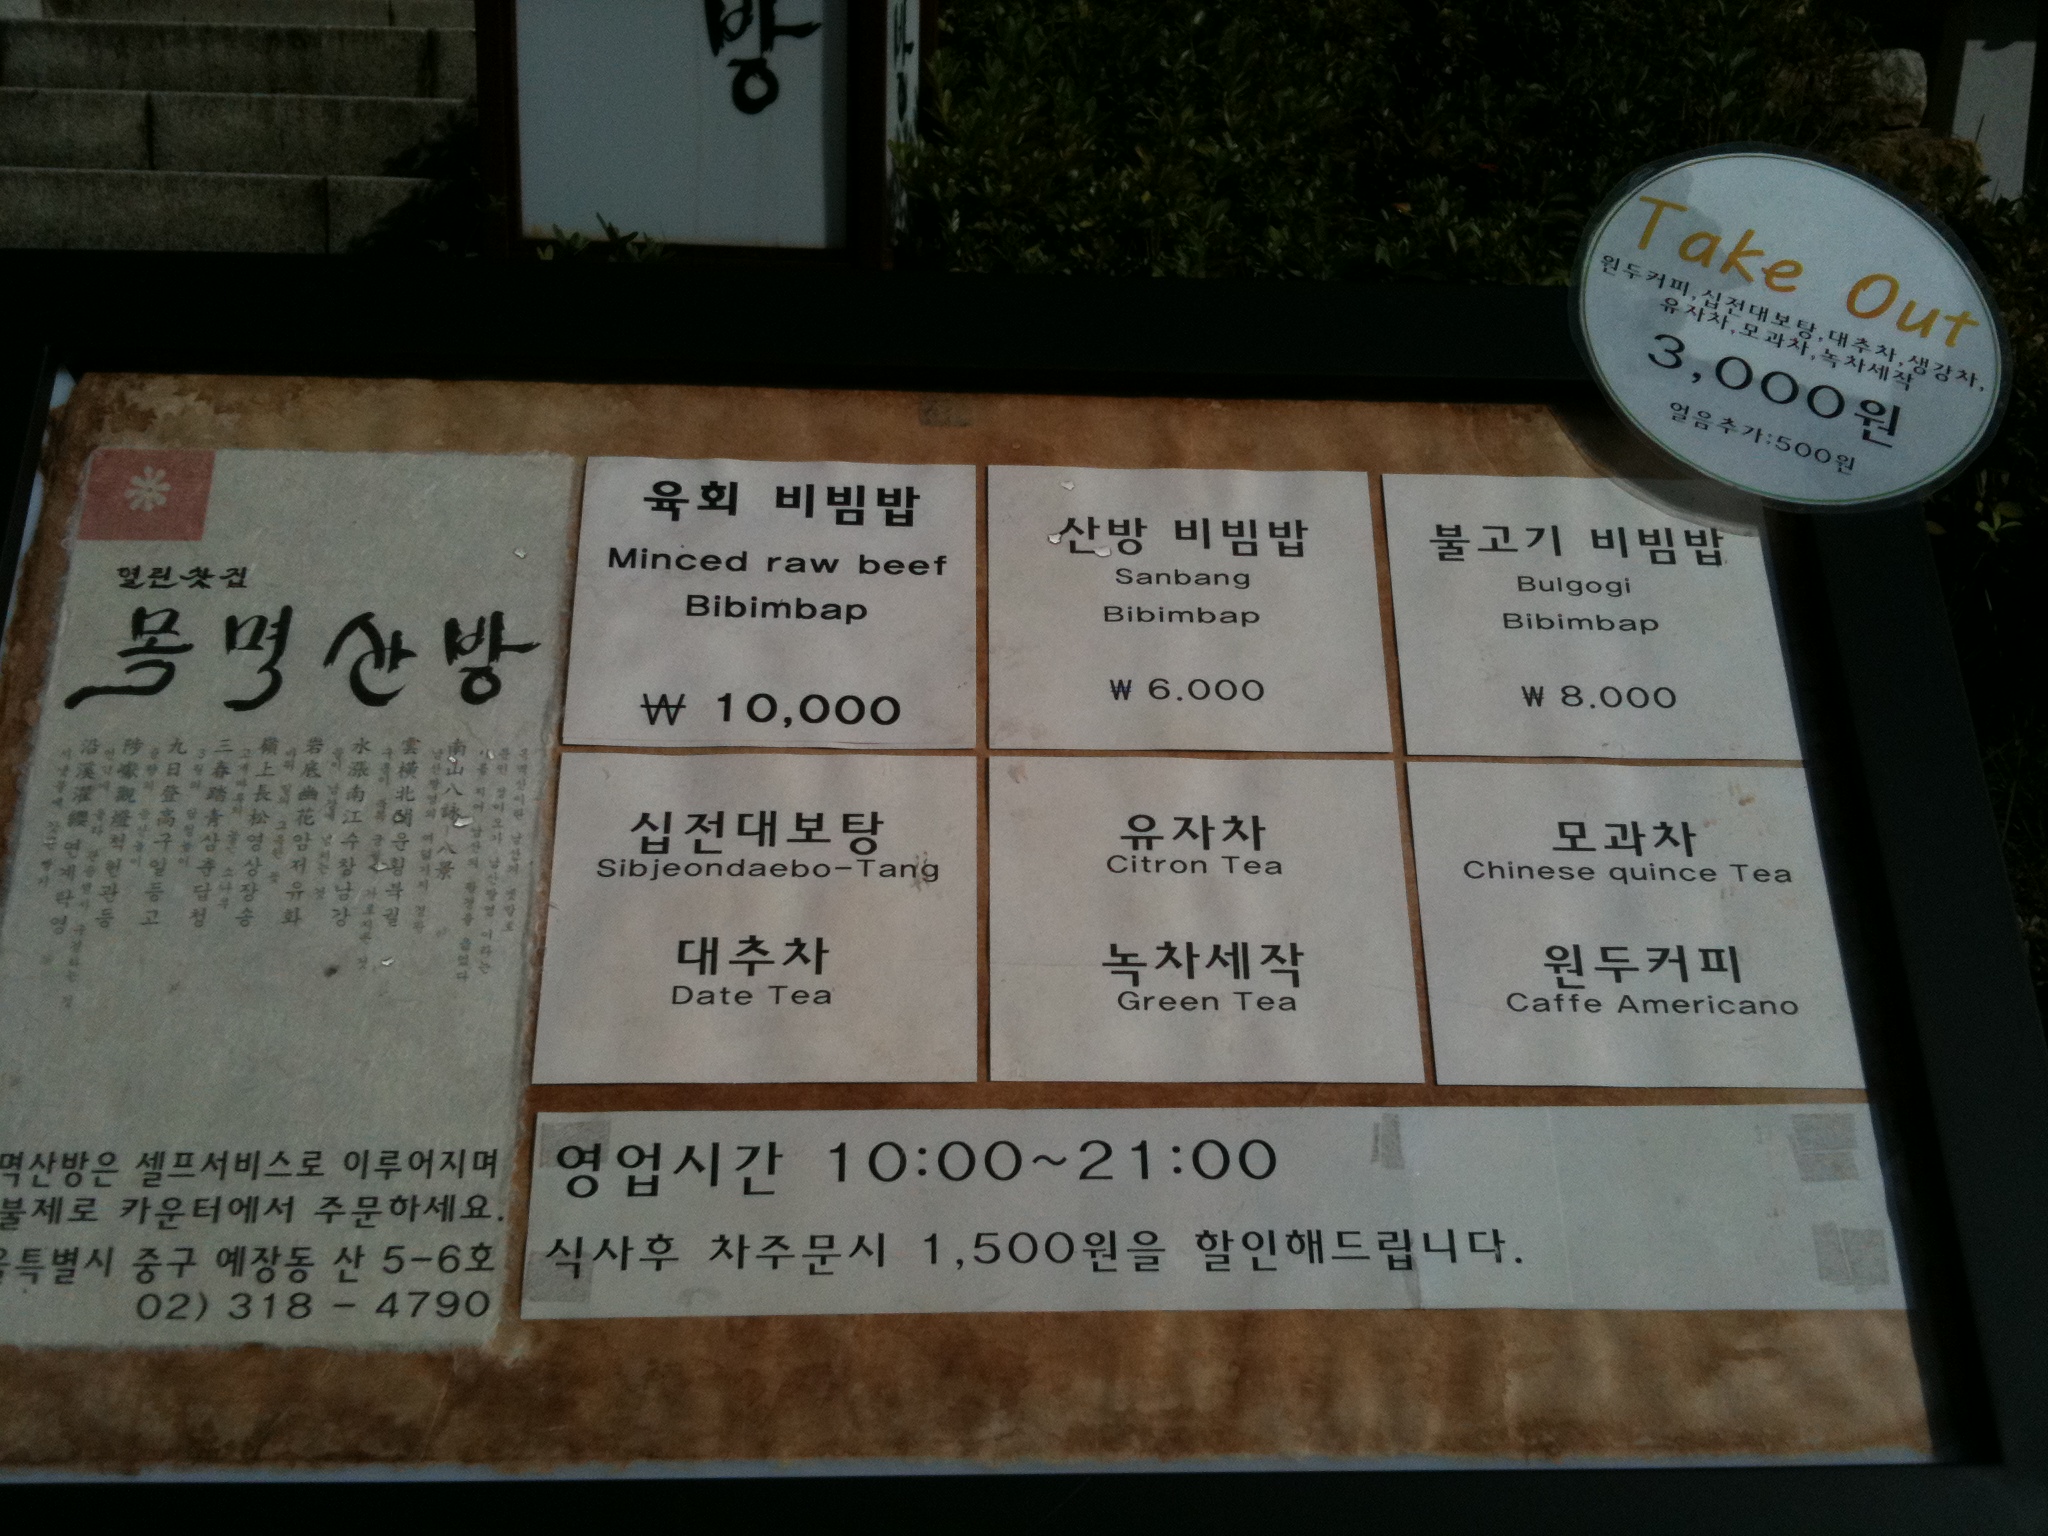 방
방
Take Out
원두커피,십전대보탕,대추차,생강차,
유자차,모과차,녹차세작
3,000원
얼음추가:500원
열린찻집
목멱산방
南山八詠
雲橫北闕 운횡북궐
水漲南江 수창남강
岩底幽花 암저유화
嶺上長松 영상장송
三春踏靑 삼춘답청
九日登高 구일등고
陟巘觀燈 척헌관등
沿溪濯纓 연계탁영
멱산방은 셀프서비스로 이루어지며
불제로 카운터에서 주문하세요.
울특별시 중구 예장동 산 5-6호
02) 318 - 4790
육회 비빔밥
Minced raw beef
Bibimbap
₩ 10,000
산방 비빔밥
Sanbang
Bibimbap
₩ 6.000
불고기 비빔밥
Bulgogi
Bibimbap
₩ 8.000
십전대보탕
Sibjeondaebo-Tang
대추차
Date Tea
유자차
Citron Tea
녹차세작
Green Tea
모과차
Chinese quince Tea
원두커피
Caffe Americano
영업시간 10:00~21:00
식사후 차주문시 1,500원을 할인해드립니다.